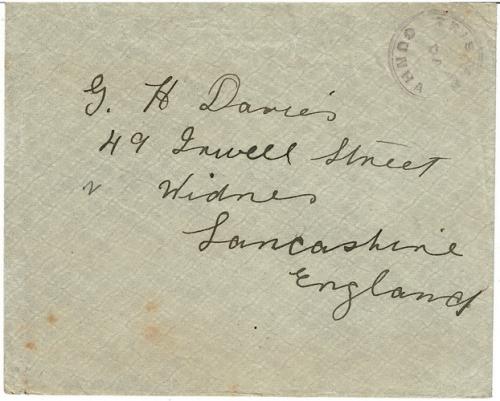 TRISTAN DA CUNHA
G. H Davies
49 Irwell Street
Widnes
Lancashire
England